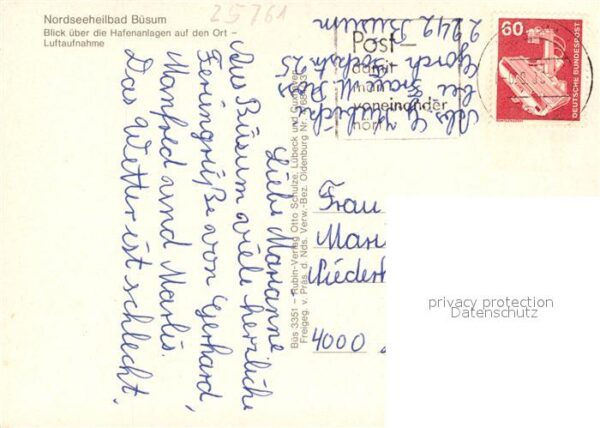 25761
Nordseeheilbad Büsum
Blick über die Hafenanlagen auf den Ort –
Luftaufnahme
Liebe Marianne
Aus Büsum viele herzliche
Feriengrüße von Gerhard,
Manfred und Marlis.
Das Wetter ist schlecht.
Büs 3351 – Rubin-Verlag Otto Schulze, Lübeck und
Freigeg. v. Präs. d. Nds. Verw.-Bez. Oldenburg Nr.
bei Frau M.
Gorch Fock str. 25
2242 Büsum
Post-
damit
man
voneinander
hört
60
DEUTSCHE BUNDESPOST
Frau
Mari
Nieder
4000
privacy protection
Datenschutz